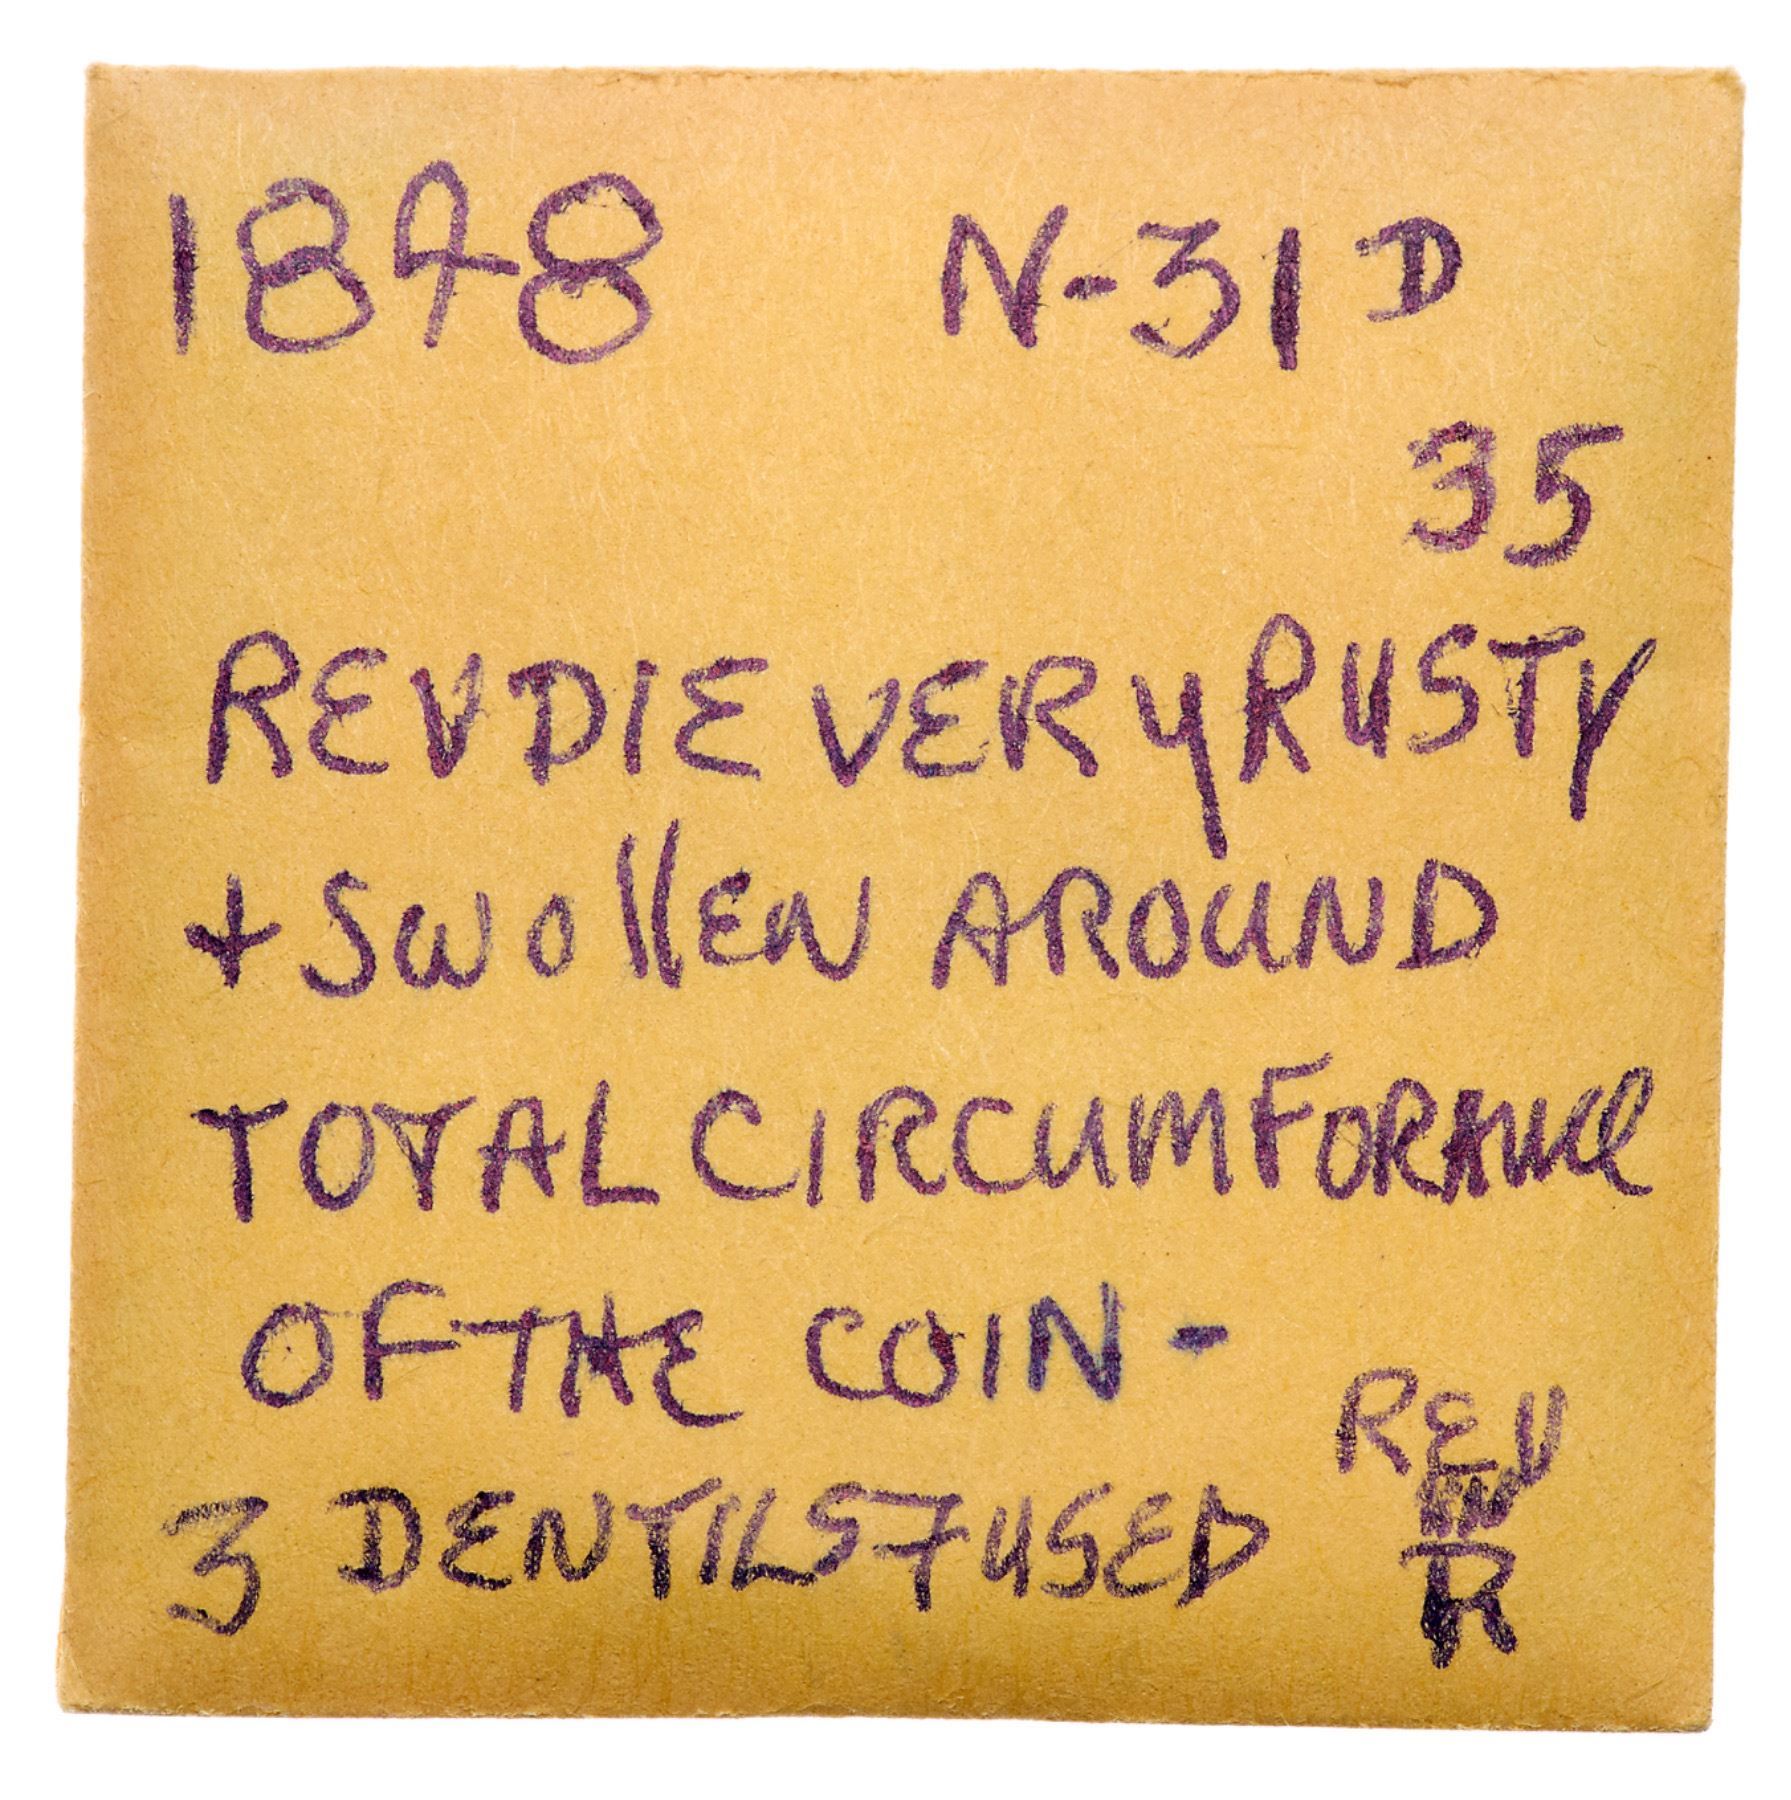 1848 N-31 D
35
REV DIE VERY RUSTY
+ SWOllEN AROUND
TOTAL CIRCUMFORANCE
OF THE COIN -
REV
3 DENTILS FUSED
R